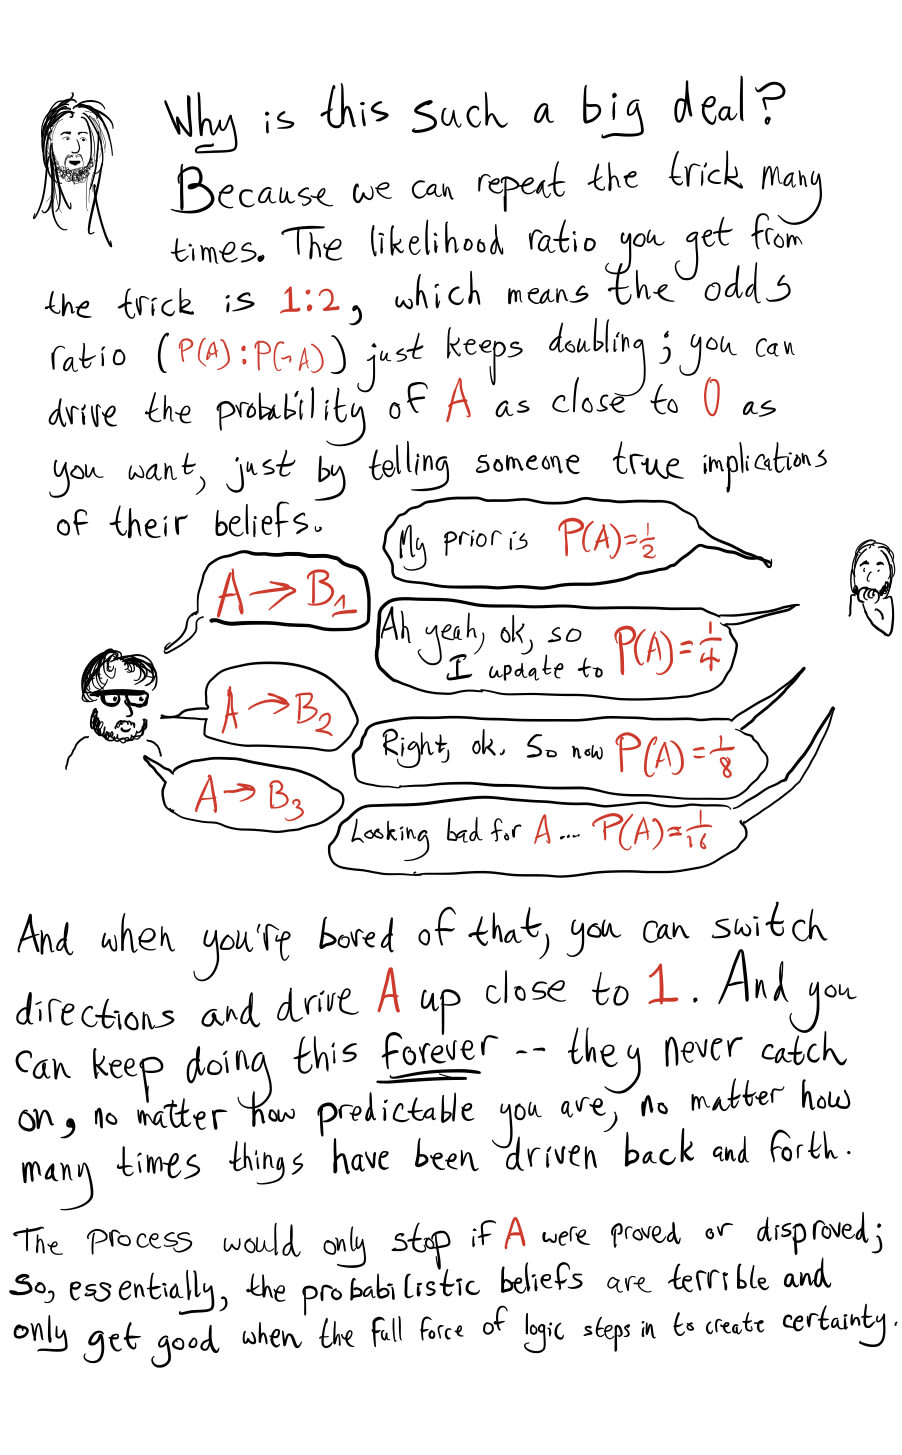 Why is this such a big deal?
Because we can repeat the trick many
times. The likelihood ratio you get from
the trick is 1:2, which means the odds
ratio (P(A):P(¬A)) just keeps doubling; you can
drive the probability of A as close to 0 as
you want, just by telling someone true implications
of their beliefs.
My prior is P(A)=1/2
A→B1
Ah yeah, ok, so
I update to P(A)=1/4
A→B2
Right, ok. So now P(A)=1/8
A→B3
Looking bad for A.... P(A)=1/16
And when you're bored of that, you can switch
directions and drive A up close to 1. And you
can keep doing this forever -- they never catch
on, no matter how predictable you are, no matter how
many times things have been driven back and forth.
The process would only stop if A were proved or disproved;
So, essentially, the probabilistic beliefs are terrible and
only get good when the full force of logic steps in to create certainty.